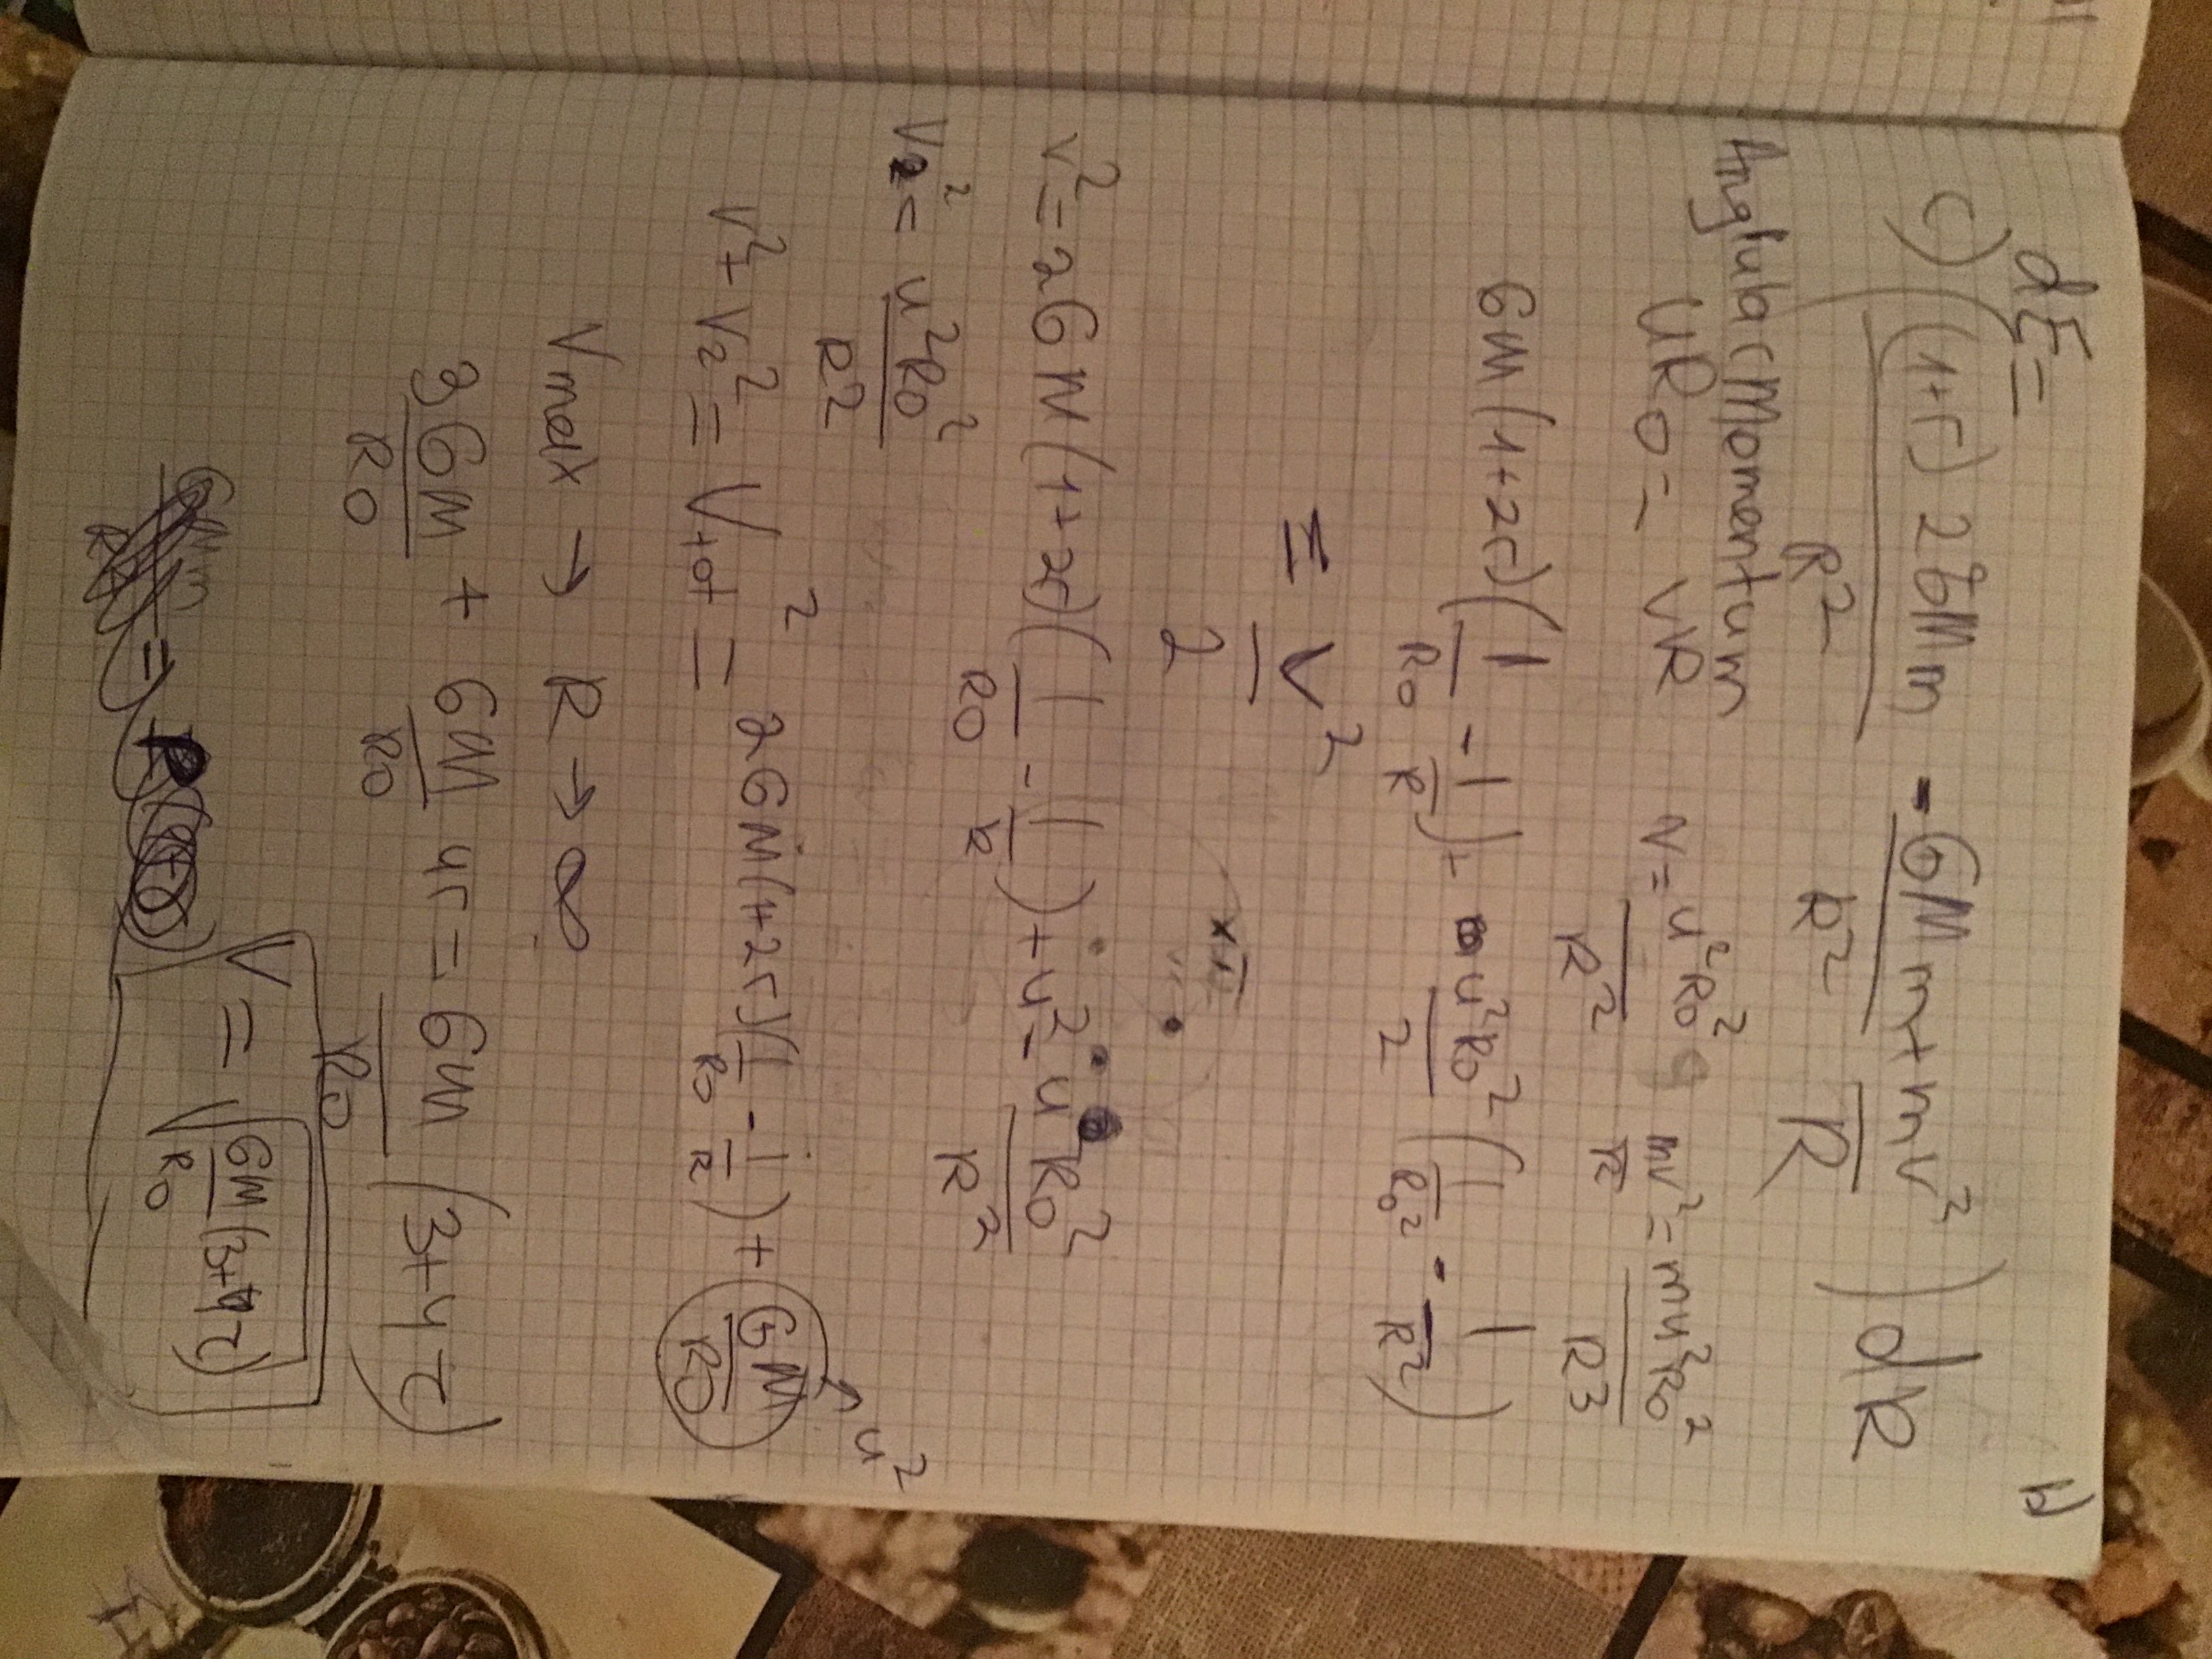 dE =
c) ((1+r) 2GMm / R² - GMm / R² + mv² / R) dR
Anglubar Momentum
uR0 = VR
V = u²R0² / R²
mv² / R = mu²R0² / R3
GM (1+2r) (1/R0 - 1/R) + u²R0² / 2 (1/R0² - 1/R²)
= V² / 2
v² = 2GM (1+2r) (1/R0 - 1/R) + u² - u²R0² / R²
V2² = u²R0² / R2
V² + V2² = Vtot² = 2GM (1+2r) (1/R0 - 1/R) + GM/R0
u²
Vmax → R → ∞
3GM / R0 + GM / R0 4r = GM / R0 (3+4r)
V = √(GM / R0 (3+4r))